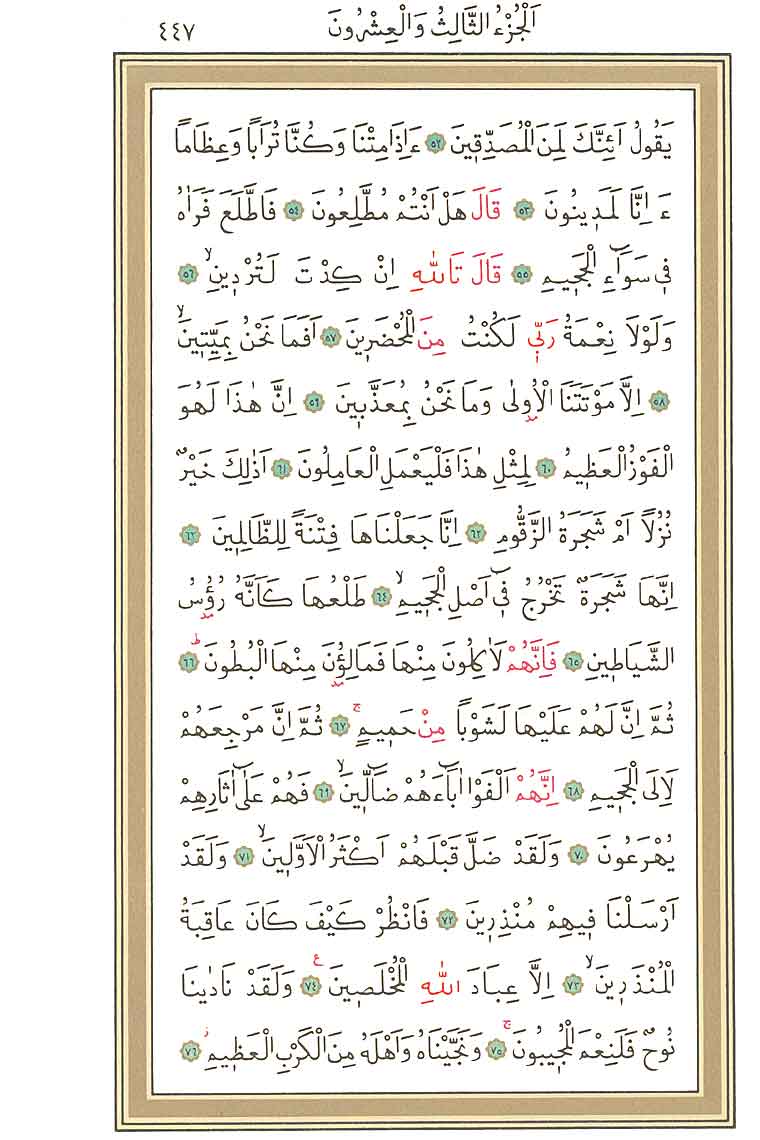 اَلْجُزْءُ الثَّالِثُ وَالْعِشْرُونَ ٤٤٧
يَقُولُ اَئِنَّكَ لَمِنَ الْمُصَدِّقٖينَ ٥٢ ءَاِذَا مِتْنَا وَكُنَّا تُرَاباً وَعِظَاماً
ءَ اِنَّا لَمَدٖينُونَ ٥٣ قَالَ هَلْ اَنْتُمْ مُطَّلِعُونَ ٥٤ فَاطَّلَعَ فَرَاٰهُ
فٖي سَوَٓاءِ الْجَحٖيمِ ٥٥ قَالَ تَاللّٰهِ اِنْ كِدْتَ لَتُرْدٖينِۙ ٥٦
وَلَوْلَا نِعْمَةُ رَبّٖي لَكُنْتُ مِنَ الْمُحْضَرٖينَ ٥٧ اَفَمَا نَحْنُ بِمَيِّتٖينَۙ
٥٨ اِلَّا مَوْتَتَنَا الْاُو۫لٰى وَمَا نَحْنُ بِمُعَذَّبٖينَ ٥٩ اِنَّ هٰذَا لَهُوَ
الْفَوْزُ الْعَظٖيمُ ٦٠ لِمِثْلِ هٰذَا فَلْيَعْمَلِ الْعَامِلُونَ ٦١ اَذٰلِكَ خَيْرٌ
نُزُلاً اَمْ شَجَرَةُ الزَّقُّومِ ٦٢ اِنَّا جَعَلْنَاهَا فِتْنَةً لِلظَّالِمٖينَ ٦٣
اِنَّهَا شَجَرَةٌ تَخْرُجُ فٖٓي اَصْلِ الْجَحٖيمِۙ ٦٤ طَلْعُهَا كَاَنَّهُ رُؤُ۫سُ
الشَّيَاطٖينِ ٦٥ فَاِنَّهُمْ لَاٰكِلُونَ مِنْهَا فَمَالِؤُ۫نَ مِنْهَا الْبُطُونَؕ ٦٦
ثُمَّ اِنَّ لَهُمْ عَلَيْهَا لَشَوْباً مِنْ حَمٖيمٍۚ ٦٧ ثُمَّ اِنَّ مَرْجِعَهُمْ
لَاِلَى الْجَحٖيمِ ٦٨ اِنَّهُمْ اَلْفَوْا اٰبَٓاءَهُمْ ضَٓالّٖينَۙ ٦٩ فَهُمْ عَلٰٓى اٰثَارِهِمْ
يُهْرَعُونَ ٧٠ وَلَقَدْ ضَلَّ قَبْلَهُمْ اَكْثَرُ الْاَوَّلٖينَۙ ٧١ وَلَقَدْ
اَرْسَلْنَا فٖيهِمْ مُنْذِرٖينَ ٧٢ فَانْظُرْ كَيْفَ كَانَ عَاقِبَةُ
الْمُنْذَرٖينَۙ ٧٣ اِلَّا عِبَادَ اللّٰهِ الْمُخْلَصٖينَ ع ٧٤ وَلَقَدْ نَادٰينَا
نُوحٌ فَلَنِعْمَ الْمُجٖيبُونَۚ ٧٥ وَنَجَّيْنَاهُ وَاَهْلَهُ مِنَ الْكَرْبِ الْعَظٖيمِ ز ٧٦